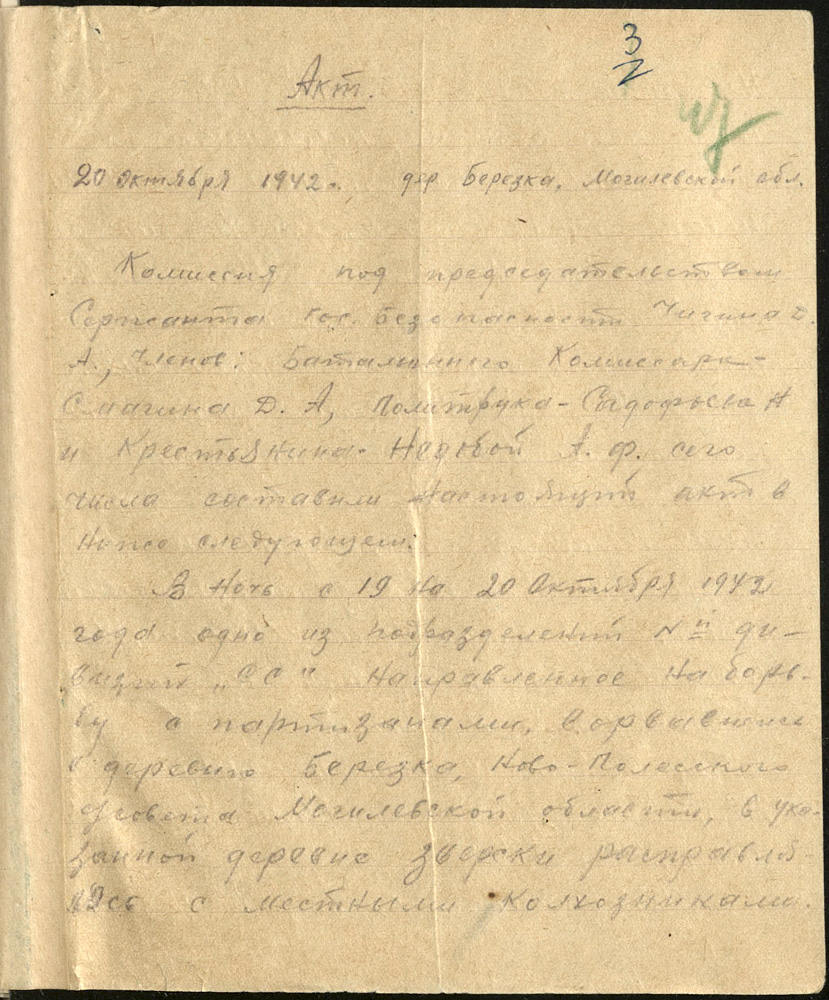 3
2
Акт.
20 октября 1942 г., дер Березка, Могилевской обл.
Комиссия под председательством
Сержанта гос. безопасности Чигина Д.
А., членов: Баталионного Комиссара-
Смагина Д. А, Политрука-
и Крестьянина- А. Ф. сего
числа составили настоящий акт в
следующем:
В ночь с 19 на 20 октября 1942
года одно из подразделений N ди-
визии „СС" направленное на борь-
бу с партизанами, ворвавшись
в деревню Березка, Ново-Полесского
с/совета Могилевской области, в ука-
занной деревне зверски расправля-
лась с местными колхозниками.